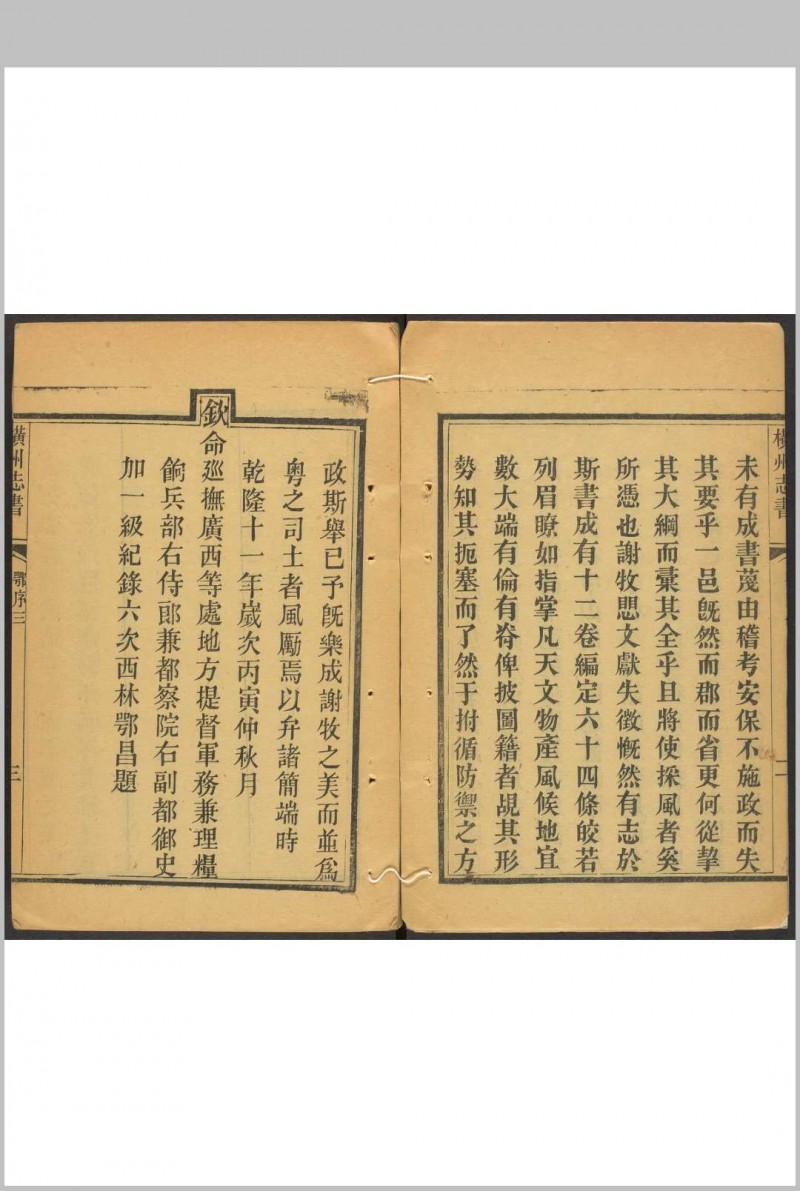 橫州志書
二
未有成書蔑由稽考安保不施政而失
其要乎一邑旣然而郡而省更何從挈
其大綱而彙其全乎且將使採風者奚
所憑也謝牧愳文獻失徵慨然有志於
斯書成有十二卷編定六十四條皎若
列眉瞭如指掌凡天文物產風候地宜
數大端有倫有脊俾披圖籍者覘其形
勢知其扼塞而了然于拊循防禦之方
政斯舉已予旣樂成謝牧之美而並爲
粵之司土者風勵焉以弁諸簡端時
乾隆十一年歲次丙寅仲秋月
欽命巡撫廣西等處地方提督軍務兼理糧
餉兵部右侍郎兼都察院右副都御史
加一級紀錄六次西林鄂昌題
橫州志書
鄂序三
三